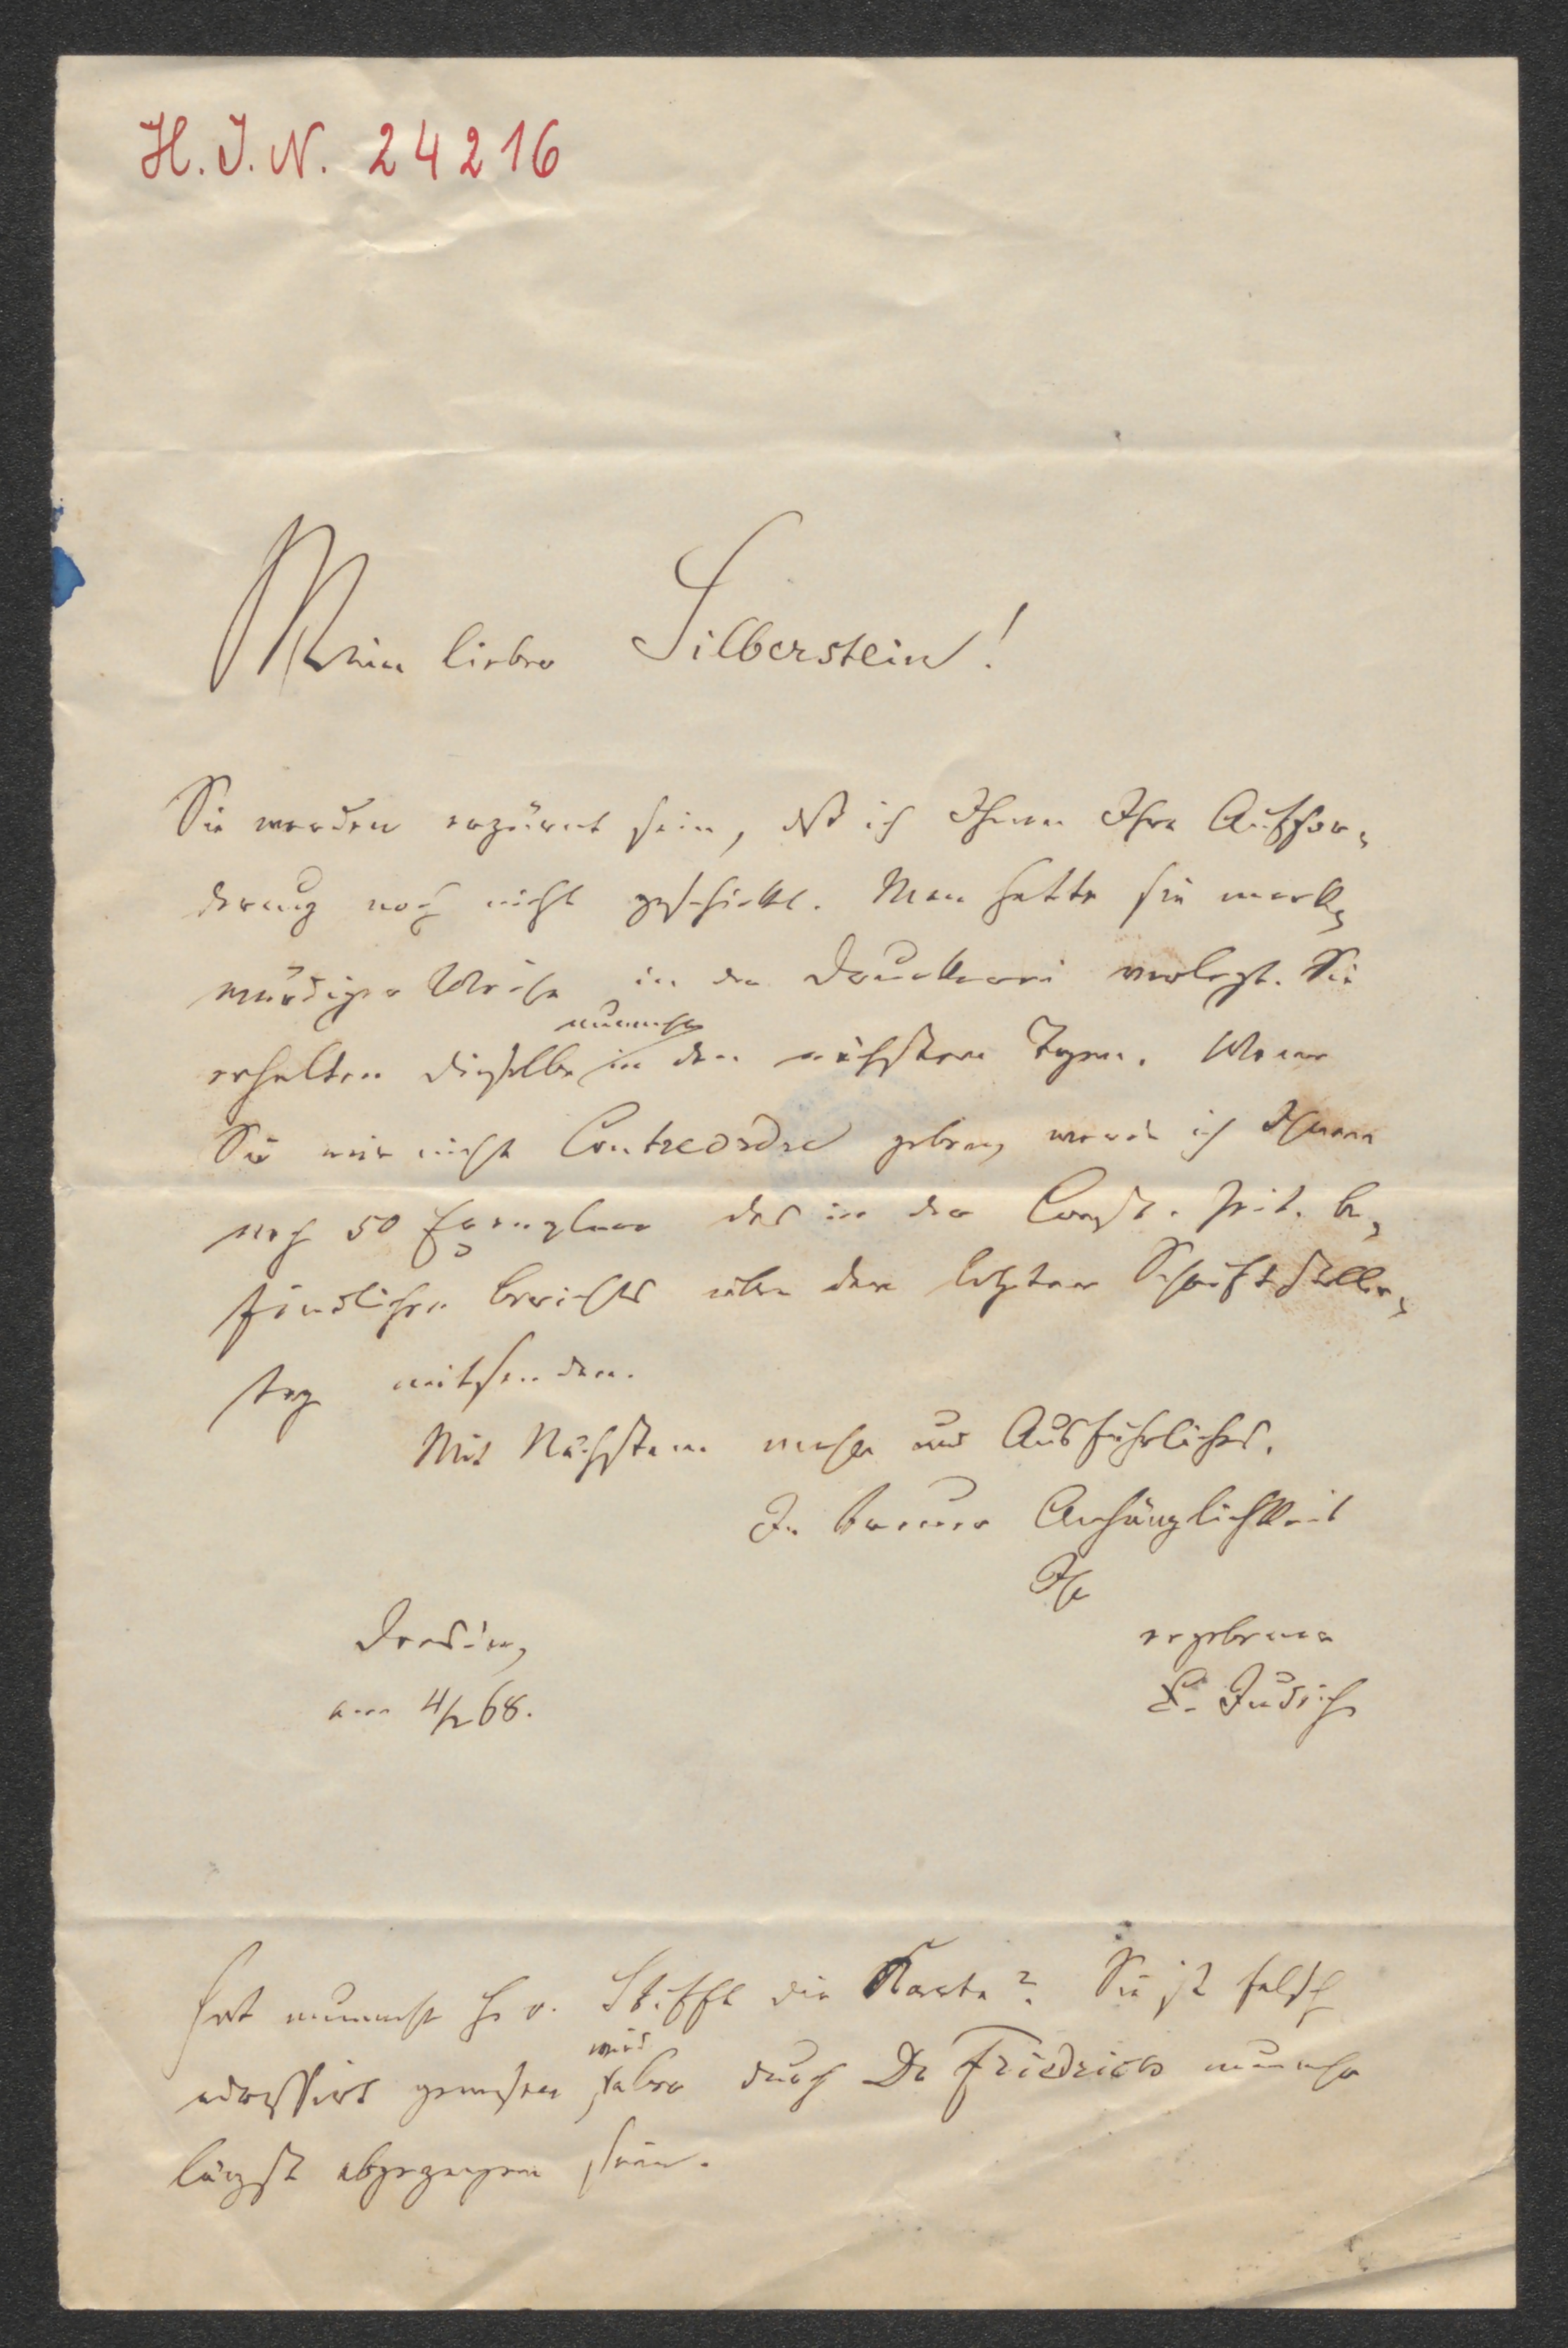 H. I. N. 24216
Mein lieber Silberstein!
Sie werden erzürnt sein, daß ich Ihnen Ihre Auffor-
derung noch nicht geschickt. Man hatte sie merk-
würdiger Weise in der Druckerei verlegt. Sie
nunmehr
erhalten dieselbe in den nächsten Tagen. Wenn
Sie mir nicht Contreordre geben, werde ich Ihnen
noch 50 Exemplare des in der Const. Zeit. be-
findlichen Berichts über den letzten Schriftsteller-
tag mitsenden.
Mit Nächstem mehr und Ausführliches.
In treuer Anhänglichkeit
Ihr
ergebener
Dresden,
am 4/2 68.
Hat nunmehr H. v. Stifft die Karte? Sie ist falsch
wird
adressirt gewesen, aber durch Dr Friedrich nunmehr
längst abgegangen sein.